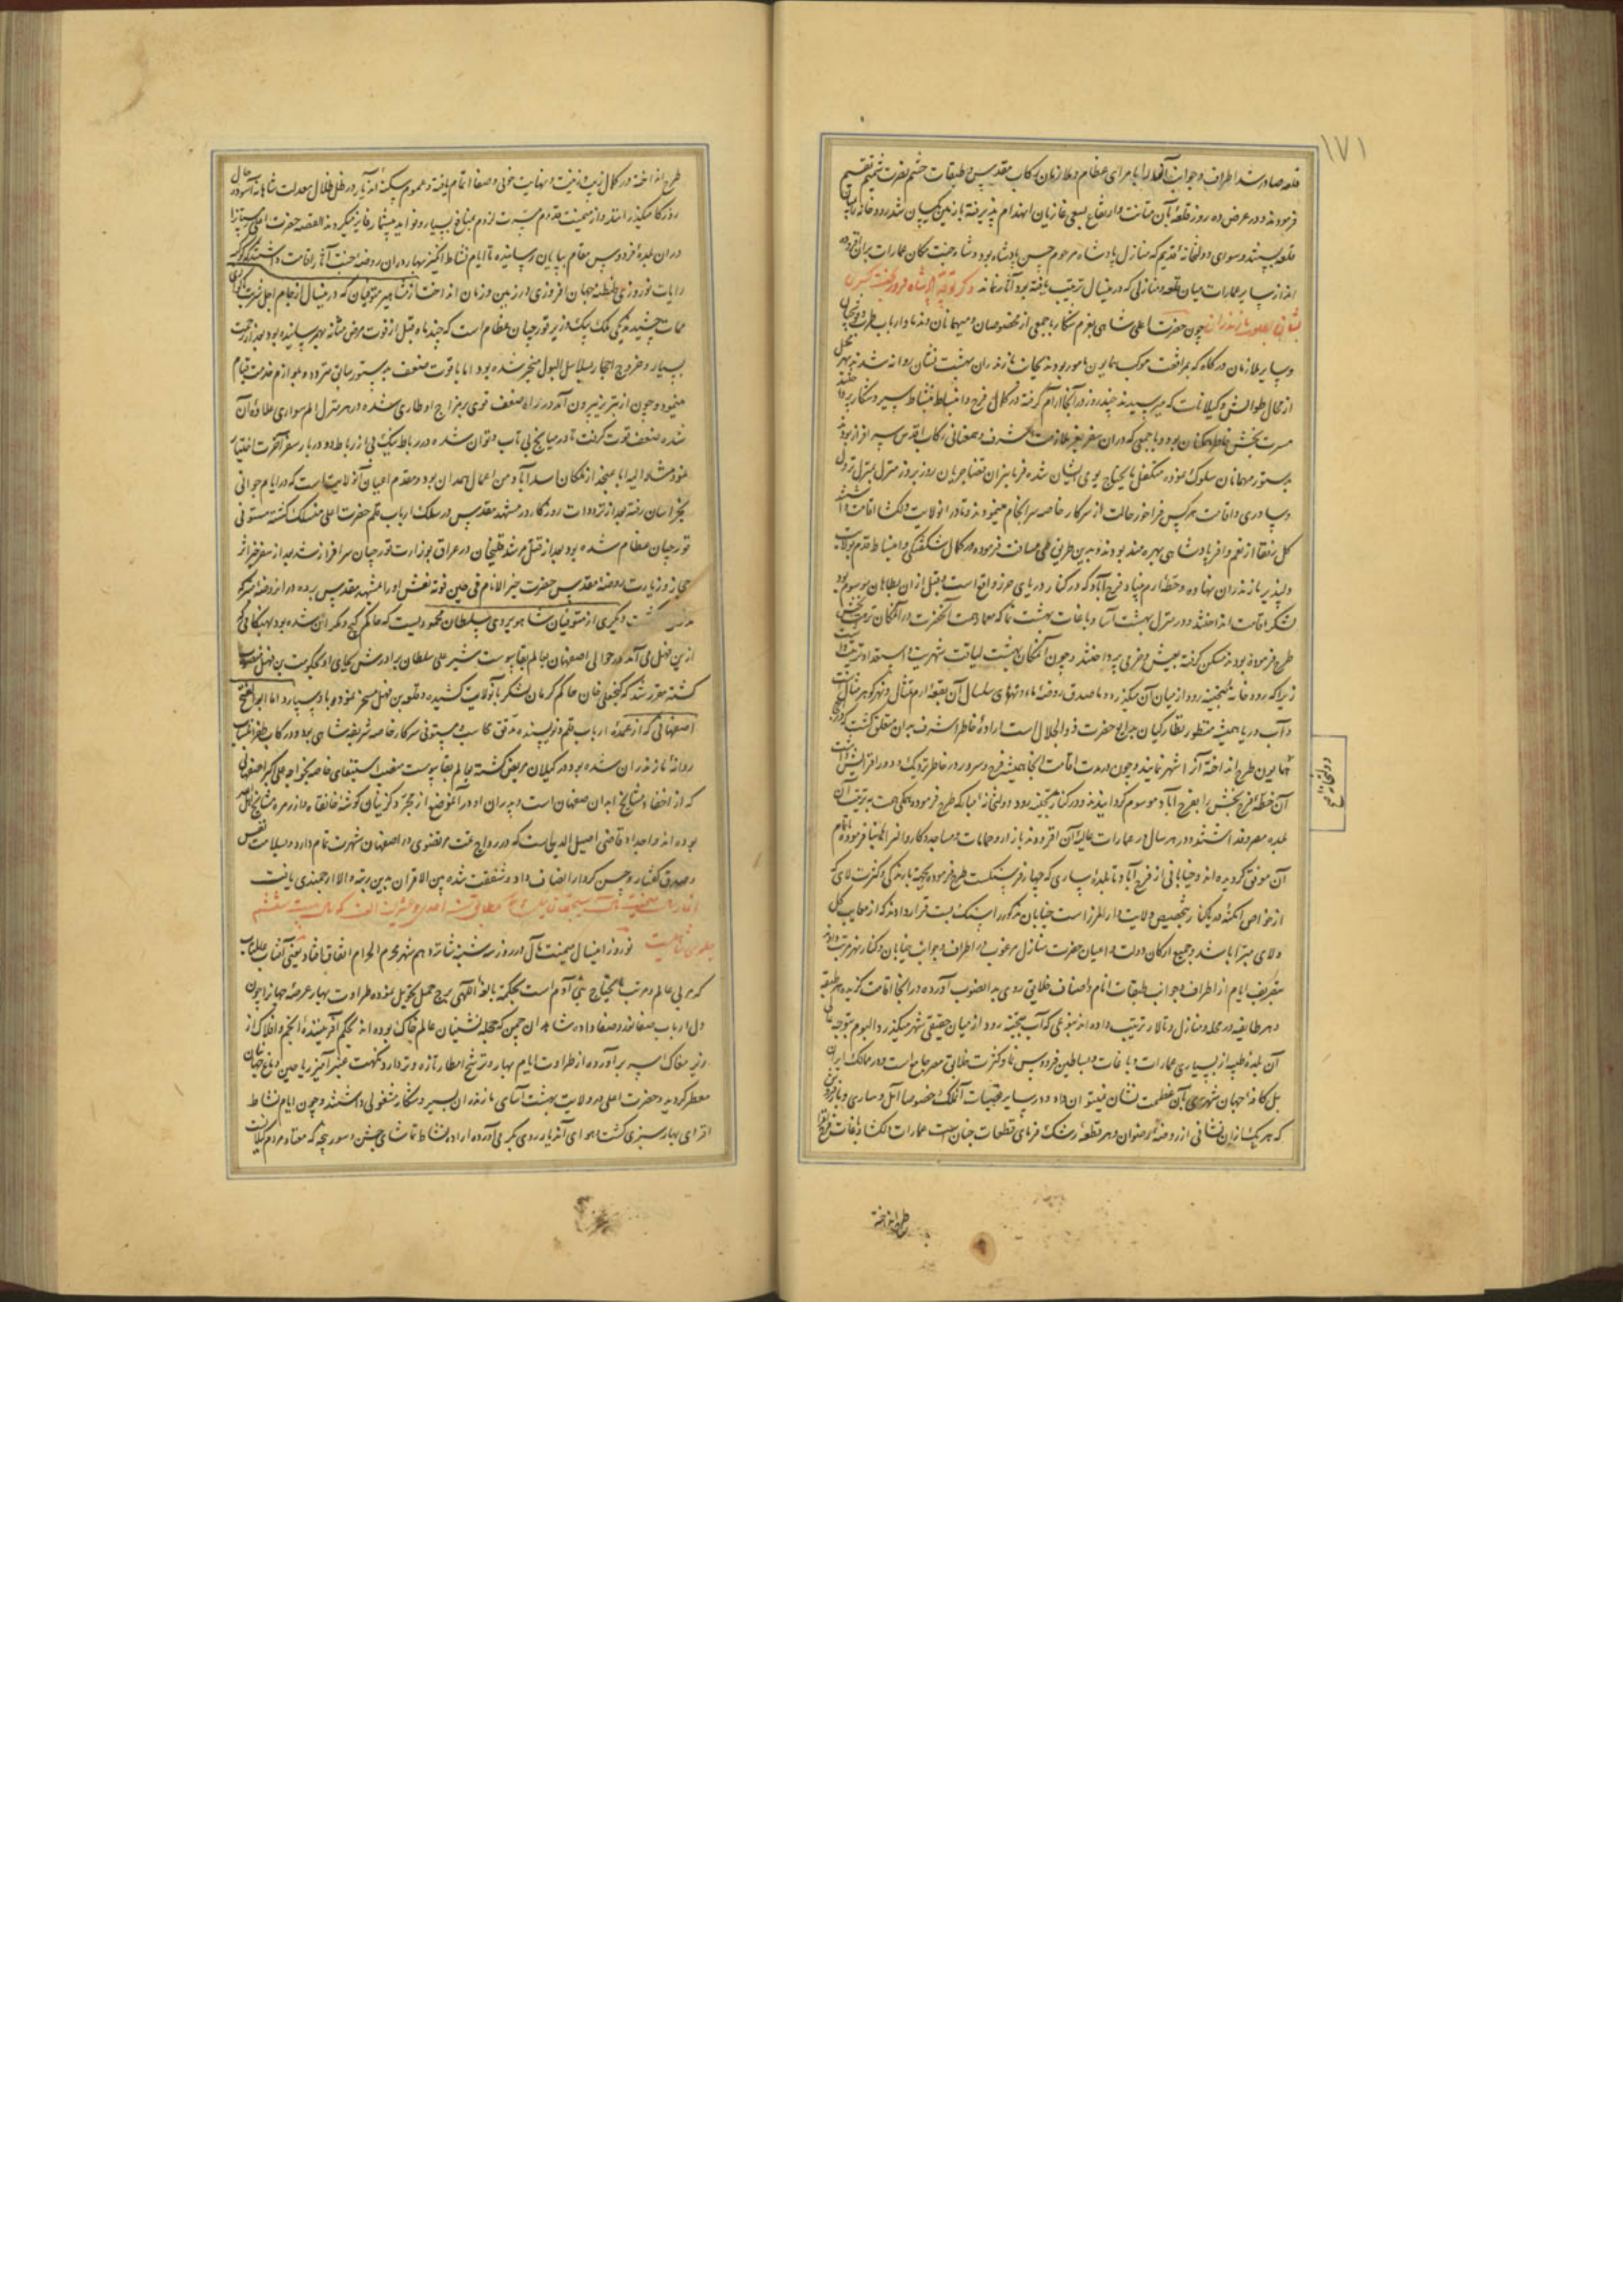 ۱۷۱
قلعه صادر شد اطراف و جوانب آنرا با مرای عظام و ملازمان رکاب مقدس و طبقات حشم نصرت شیم تقسیم
فرمودند و در عرض ده روز قلعه بآن متانت و ارتفاع بسعی غازیان انهدام پذیرفته با زمین یکسان شد و رودخانه بمیان
قلعه پیوستند و سوای دولتخانه قدیم که منازل پادشاه مرحوم حسن پادشاه بود و شاه جنت مکان عمارات بران افزوده
اند از سایر عمارات میان قلعه و منازلی که در میسال ترتیب یافته بود آثار نماند ذکر توجه
بصوب مازندران چون حضرت اعلی شاهی بعزم شکار با جمعی از مخصوصان و میهمانان و ندما و ارباب طرب
و سایر ملازمان درگاه که بمرافقت موکب همایون مامور بودند بجانب مازندران بهشت نشان روانه شدند
از محال طوالش و گیلانات که میرسیدند چند روز در آنجا آرام گرفته در کمال فرح و انبساط بنشاط سیر و شکار
مسرت بخش خاطر همگنان بود و با جمعی که دران سفر بعز ملازمت اشرف و همعنانی رکاب اقدس سرافراز بودند
بدستور مهمانان سلوک نموده متکفل مایحتاج یومی ایشان شده فرمانبران قضا جریان روز بروز منزل بمنزل نزول
و سایری و اقامت هر کس فراخور حالت از سرکار خاصه سرانجام مینمودند و تا در انولایت دلگشا اقامت داشتند
کل رفقا از نعم وافر پادشاهی بهره مند بودند و بدین طریق طی مسافت فرموده در کمال شگفتگی و انبساط قدم بولایت
دلپذیر مازندران نهاده و خطه ارم بنیاد فرح آباد که در کنار دریای خزر واقع است و قبل ازان بطاهان موسوم بود
لنگر اقامت انداختند و در منزل بهشت آسا و باغات بهشت نما که معمار همت آنحضرت در آنمکان نزهت بخش
طرح فرموده بودند مسکن گرفته بعیش و خرمی پرداختند و چون آنمکان بهشت لیاقت شهریت و استعداد تربیت داشت
زیرا که رودخانه تجینه رود از میان آن میگذرد و ما صدق روضه ماء نهرها سلسال آن بقعه ارم مثال و نهر کوهر مثال
و آب دریا همیشه منظور نظارگیان جوایع حضرت ذوالجلال است اراده خاطر اشرف بدان متعلق گشت که
همایون طرح انداخته آنرا شهر نمایند و چون مدت اقامت آنجا همیشه فرح و سرور در خاطر نزدیک و دور افزایش داشت
آن خطه فرح بخش را بفرح آباد موسوم گردانیدند و در کنار تجینه رود دولتخانه مبارکه طرح فرموده همگی همت بر ترتیب آن
بلده مصروف داشتند و در هر سال در عمارات عالیه آن افزودند بازار و حمامات و مساجد و کاروانسرا بنا فرموده باتمام
آن موفق گردیده اند و خیابانی از فرح آباد تا بلده ساری که چهار فرسنگست طرح فرموده بجهة بارندگی و کثرت لای که
از خواص امکنه دریاکنار بتخصیص ولایت دارالمرز است خیابان مذکور را سنگ بست قرار دادند که از معایب گل
و لای مبرا باشد و جمیع ارکان دولت و اعیان حضرت منازل مرغوب در اطراف و جوانب خیابان و کنار نهر مرتب دارند
بتقریب ایام از اطراف و جوانب طبقات انام و اصناف خلایق روی بدانصوب آورده در آنجا اقامت گزیده هر طبقه
و هر طایفه در محله و منازل و تالار ترتیب داده اند بنوعی که آب تجینه رود از میان حقیقی شهر میگذرد و الیوم بتوجه عالی
آن بلده طیبه از بسیاری عمارات و باغات و بساطین فردوس نما و کثرت خلایق مصر جامع است و در ممالک ایران
بل کافه جهان شهری بآن عظمت نشان نمیتوان داد و در سایر قصبات آنملک خصوصا آمل و ساری و بارفروش
که هر یک ازان نشانی از روضه رضوان و هر قطعه رشک فرمای قطعات جنان است عمارات دلگشا و باغات فرح افزا
دولتخانه
طرح انداخته
طرح انداخته در کمال زیب و زینت و نهایت خوبی و صفا اتمام یافته و عموم سکنه آندیار در ظل ظلال معدلت شاهانه آسوده حال
روزگار میگذرانند و از میمنت قدوم مسرت لزوم بمنافع بسیار و فواید بیشمار فایز میگردند القصه حضرت اعلی شتا را
دران بلده فردوس مقام بپایان رسانیده تا ایام نشاط انگیز بهار دران روضه جنت آثار اقامت داشتند که کوکبه
رایات نوروزی طنطنه جهان افروزی در زمین و زمان انداخت از مشاهیر متوفیان که در میسال از جام اجل شربت
ممات چشیدند یکی ملک بیک وزیر قورچیان عظام است که چند ماه قبل از فوت مرض مثانه بهم رسانیده بود بعد از زحمت
بسیار و خروج احجار بسلاسل البول منجر شده بود اما با قوت ضعف بدستور سابق متردد و بلوازم خدمت قیام
مینمود و چون از تبریز بیرون آمد در راه ضعف قوی بر مزاج او طاری شده در هر منزل الم سواری علاوه آن
شده ضعف قوت گرفت تا در میانج بی تاب و توان شده در رباط بیک بی از رباط دو در بار سفر آخرت اختیار
نمود مشار الیه ابا عن جد از ملکان اسدآباد من اعمال همدان بود و مقدم اعیان آنولایت است که در ایام جوانی
بخراسان رفته بعد از ترددات روزگار در مشهد مقدس در سلک ارباب قلم حضرت اعلی منسلک گشته مستوفی
قورچیان عظام شده بود بعد از قتل مرشد قلیخان در عراق بوزارت قورچیان سرافراز شد بعد از سفر خیر اثر
حجاز و زیارت روضه مقدس حضرت خیر الانام فی حین فوته نعش او را بمشهد مقدس برده در انروضه متبرکه
مدفون گشت و دیگری از متوفیان شاهویردی سلطان محمودیست که حاکم کیج و مکران شده بود بهنگامی که
ازین فهل می آمد در حوالی اصفهان بعالم بقا پیوست شیر علی سلطان برادرش بجای او بحکومت بن فهل منصوب
گشته مقرر شد که گنجعلی خان حاکم کرمان لشکر بآنولایت کشیده و قلعه بن فهل مسخر نموده باو سپارد اما ابوالفتح
اصفهانی که از عمده ارباب قلم و نویسنده مدقق محاسب و مستوفی سرکار خاصه شریفه شاهی بود و در رکاب ظفر انتساب
روانه مازندران شده بود در گیلان مریض گشته بعالم بقا پیوست منصب استیفای خاصه بخواجه علی اکبر اصفهانی
که از احفاد مشایخ ابدان صفهان است و پدران او در آنموضع از مجرد گزینان گوشه خانقاه و از زمره مشایخ اهل
بوده اند و اجداد قاضی اصیل الدین است که در رواج عنت مرتضوی در اصفهان شهرت تمام دارد و بسلامت نفس
و صدق گفتار و حسن کردار اتصاف داد و شفقت شده بین الاقران بدین رتبه والا ارجمندی یافت
آغاز سال میمنت مآل سیچقان ئیل مطابق سنه احدی و عشرین الف که سال بیست و ششم
جلوس شاهیست نوروز میسال میمنت مآل در روز سه شنبه شانزدهم شهر محرم الحرام اتفاق افتاد یعنی آفتاب عالمتاب
که مربی عالم و مرتب مایحتاج بنی آدم است بحکمة بالغه الهی ببرج حمل تحویل نموده طراوت بهار عرصه جهان را چون
دل ارباب صفا نور و صفا داد و شاهدان چمن که حجله نشینان عالم خاک بوده اند بحکم آفریننده انجم و افلاک از
زیر مغاک سر برآورده از طراوت ایام بهار و ترشح امطار تازه و تر دارد و نکهت عنبر آمیز ریاحین دماغ جهانیان
معطر گردید و حضرت اعلی در ولایت بهشت آسای مازندران بسیر و شکار مشغولی داشتند و چون ایام نشاط
افزای بهار سپری گشت و هوای آندیار روی بگرمی آورد اراده نشاط تماشای جشن و سور پنجه که معتاد مردم گیلانست